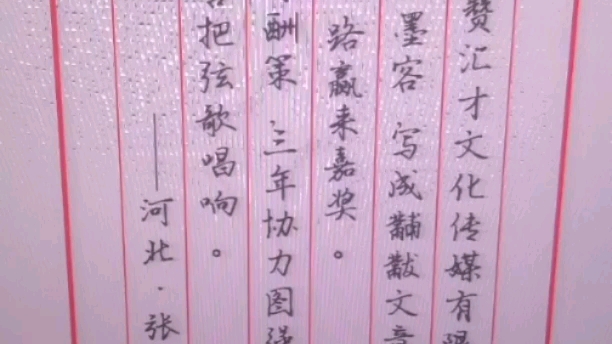 赞汇才文化传媒有限
墨容 写成黼黻文章
路赢来嘉奖。
酬策 三年协力图强
把弦歌唱响。
——河北·张